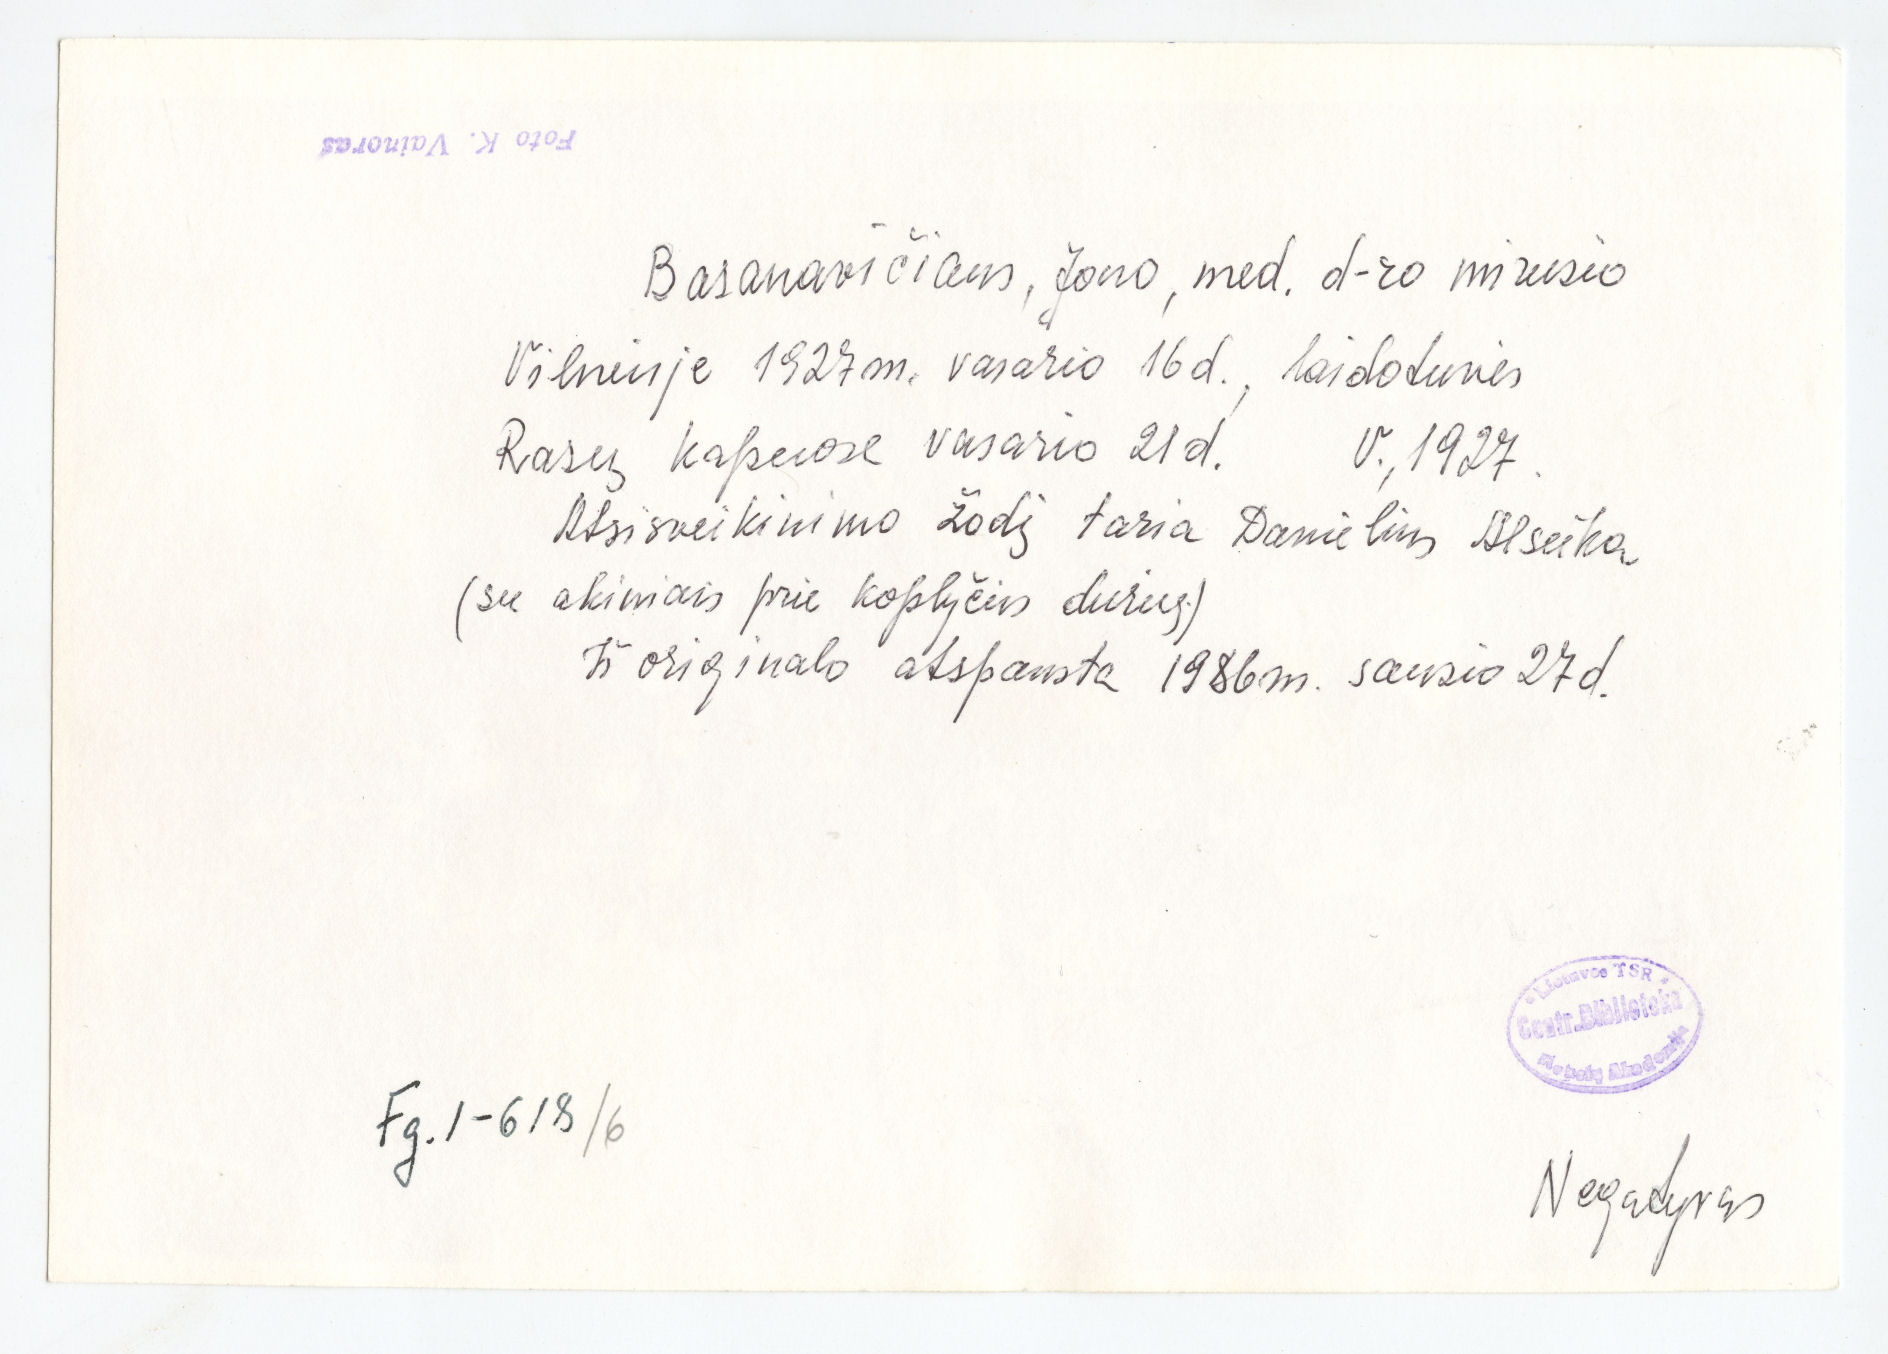 Foto K. Vainoras
Basanavičiaus, Jono, med. d-ro mirusio
Vilniuje 1927 m. vasario 16 d., laidotuvės
Rasų kapuose vasario 21 d. V., 1927.
Atsisveikinimo žodį taria Danielius Alseika
(su akiniais prie koplyčios durų)
Iš originalo atspausta 1986 m. sausio 27 d.
Lietuvos TSR
Centr. Biblioteka
Mokslų Akademija
Fg. 1-618/6
Negatyvas